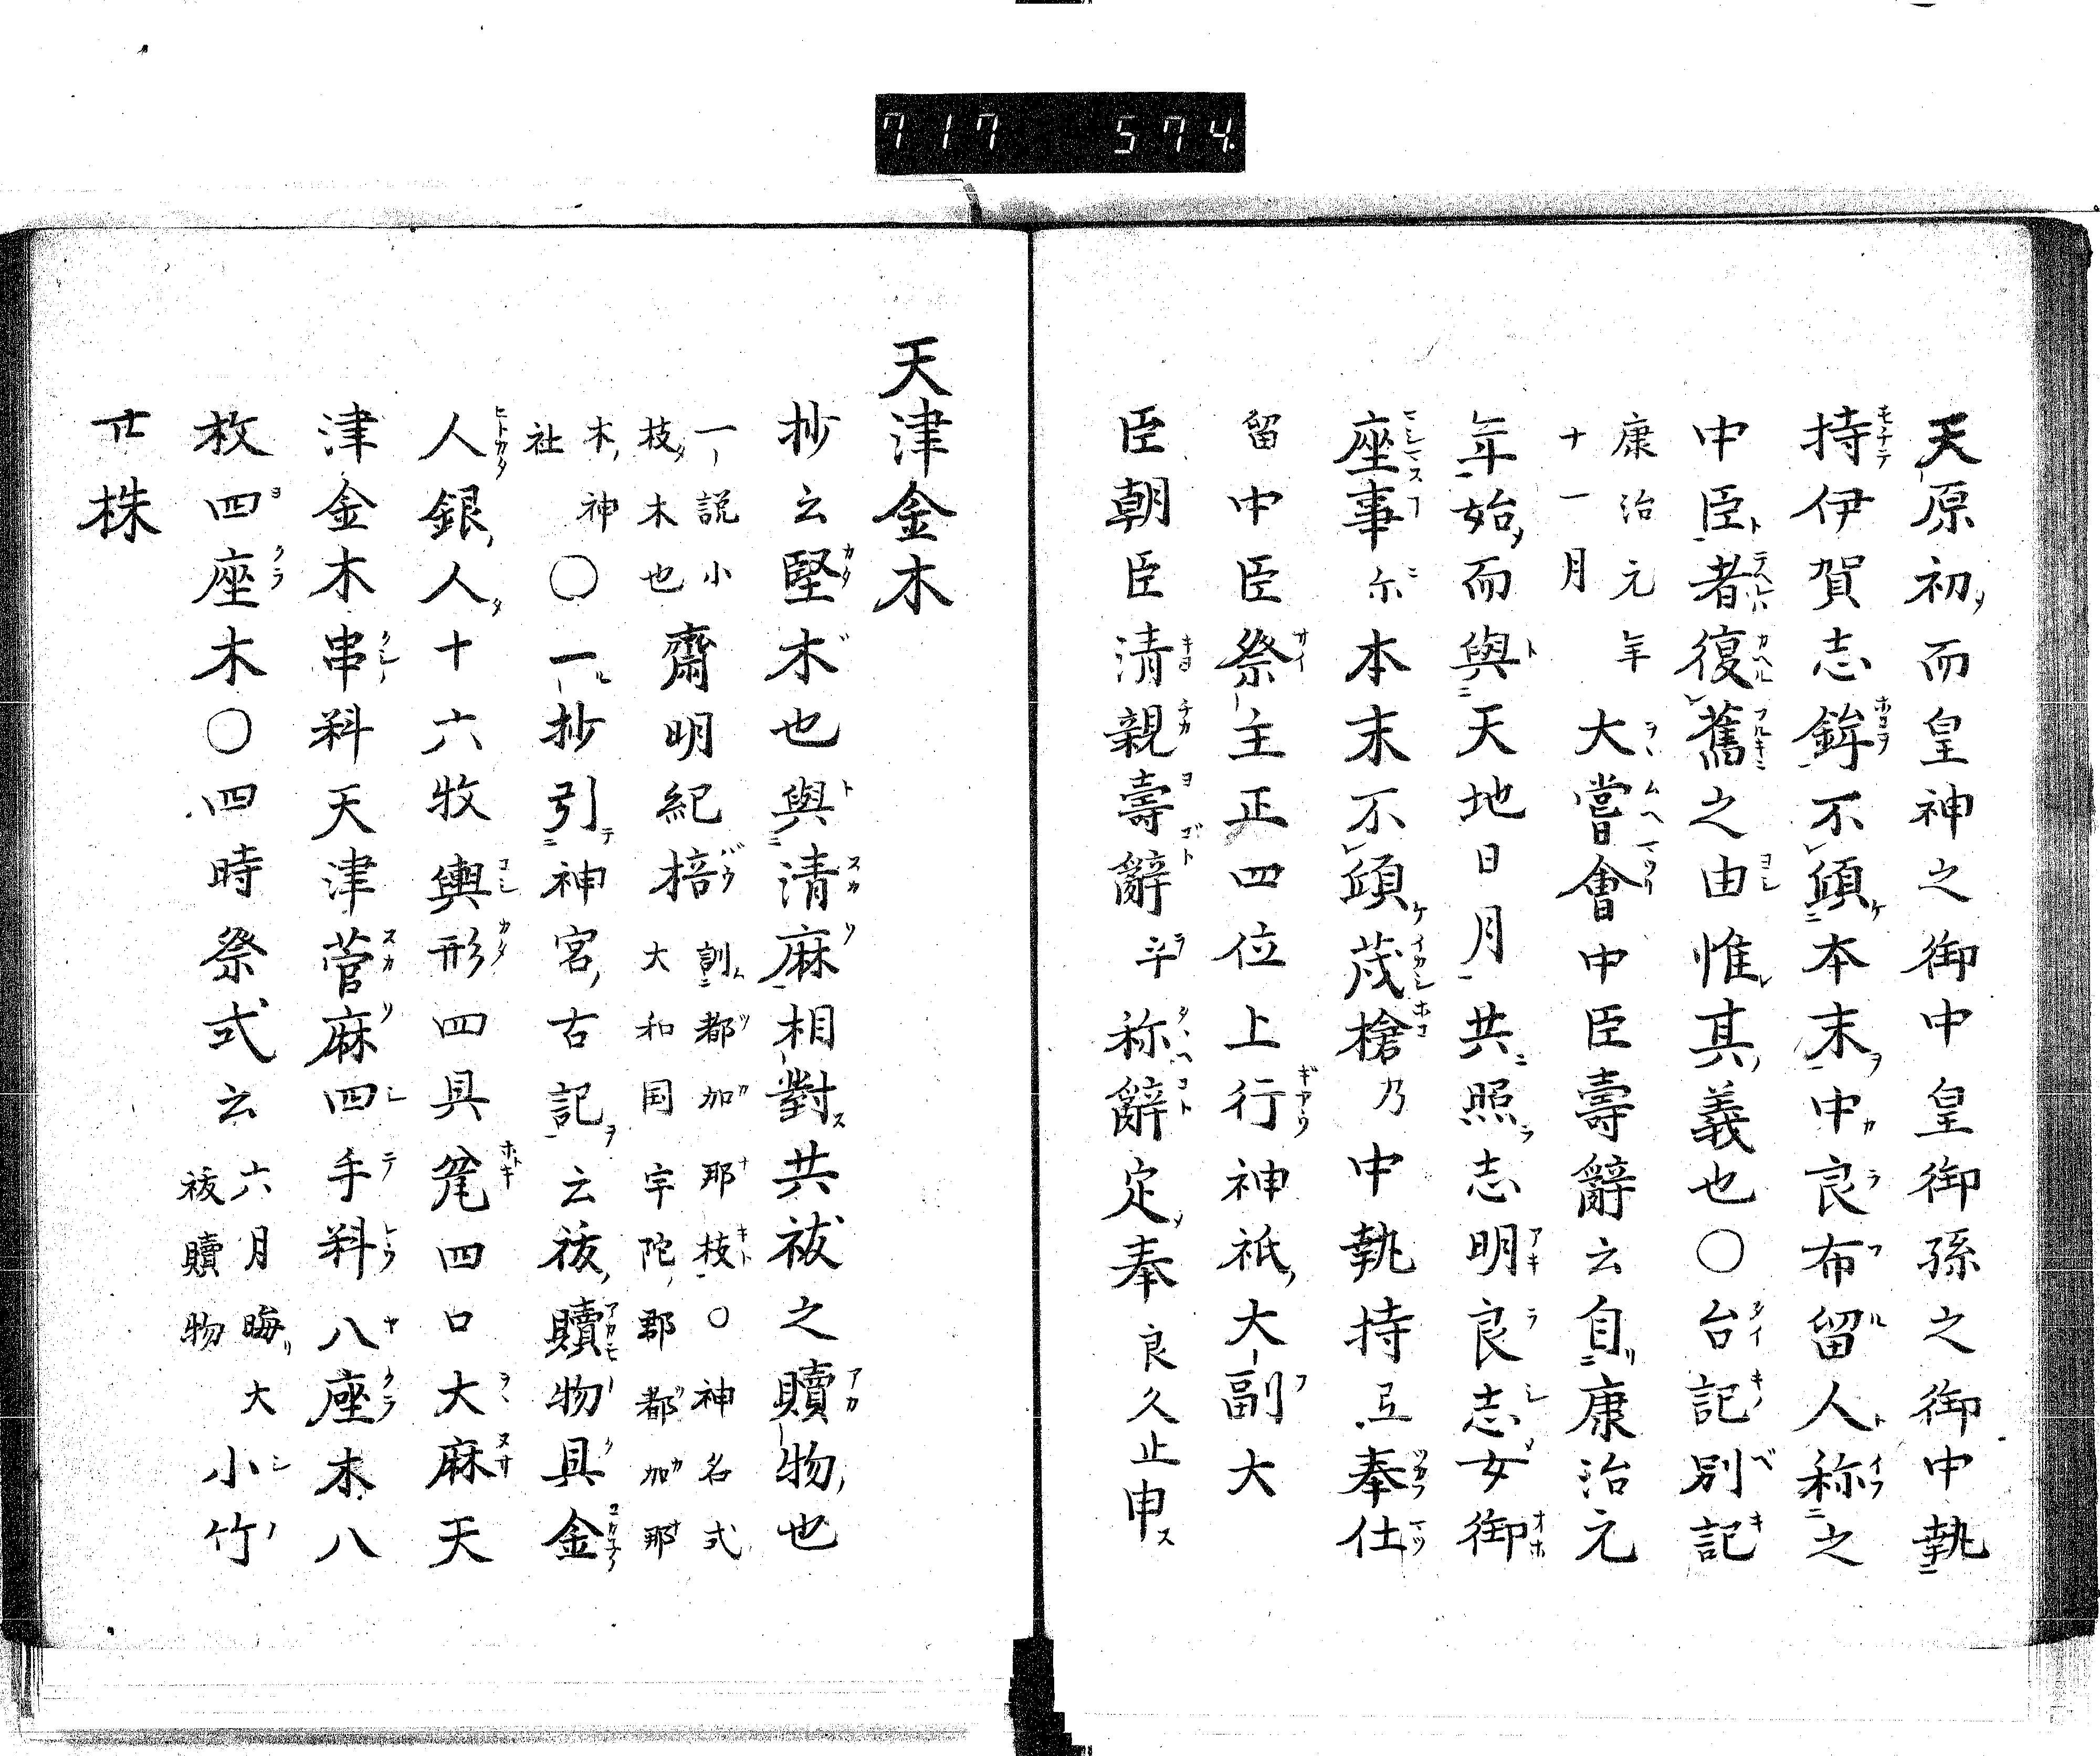 717 574
天原初而皇神之御中皇御孫之御中執
持伊賀志鉾不傾本末中良布留人称之
中臣者復舊之由惟其義也〇台記別記
康治元年
十一月
大嘗會中臣壽辭云自康治元
年始而與天地日月共照志明良志女御
座事尓本末不傾茂槍乃中執持弖奉仕
留中臣祭主正四位上行神祇大副大
臣朝臣清親壽辭斗称辭定奉良久止申
天津金木
抄云堅木也與清麻相對共祓之贖物也
一説小
枝木也
齋明紀棓
訓都加那枝〇神名式
大和国宇陀郡都加那
木神
社
〇一抄引神宮古記云祓贖物具金
人銀人十六牧輿形四具瓫四口大麻天
津金木串料天津菅麻四手料八座木八
枚四座木〇四時祭式云
六月晦大
祓贖物
小竹
廿株